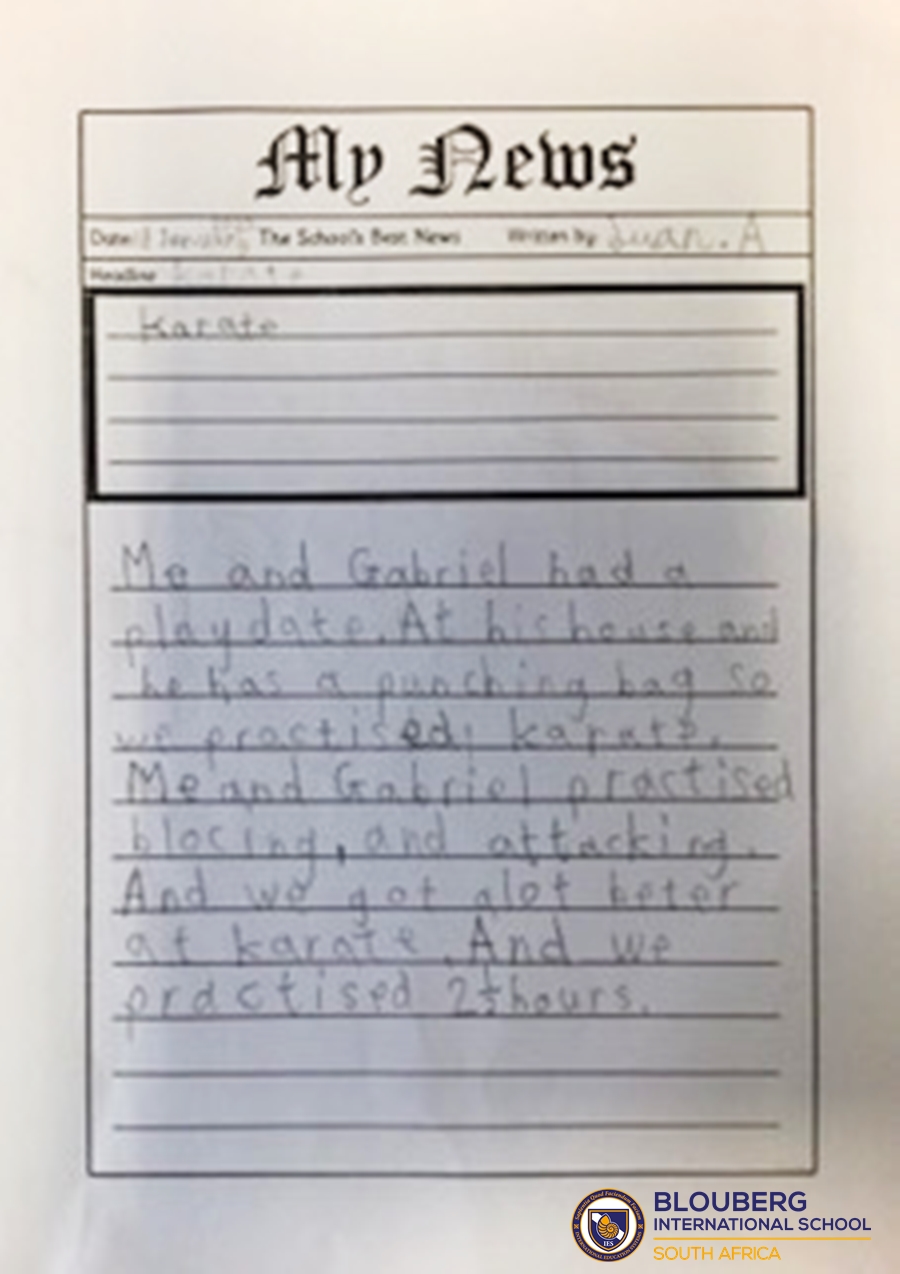 My News
Date: January The School's Best News Written by Juan. A
Headline Karate
Karate
Me and Gabriel had a
playdate. At his house and
he has a punching bag so
we practised karate.
Me and Gabriel practised
blocing, and attacking.
And we got alot beter
at karate. And we
practised 2½ hours.
BLOUBERG
INTERNATIONAL SCHOOL
SOUTH AFRICA
IES